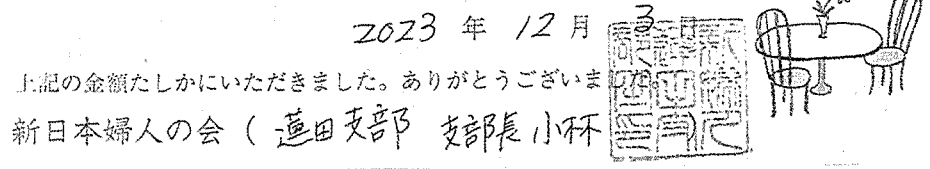 2023 年 12 月 3 日
上記の金額たしかにいただきました。ありがとうございました。
新日本婦人の会 ( 蓮田支部 支部長 小林